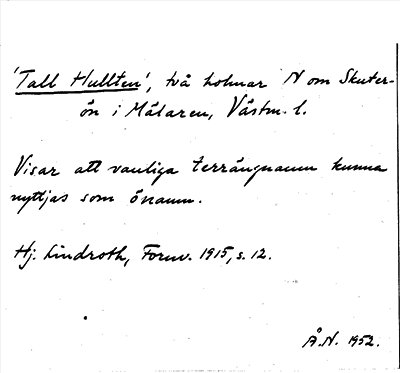 'Tall Hullten', två holmar N om Skuter-
ön i Mälaren, Västm. l.
Visar att vanliga terrängnamn kunna
nyttjas som önamn.
Hj. Lindroth, Fornv. 1915, s. 12.
Å.N. 1952.